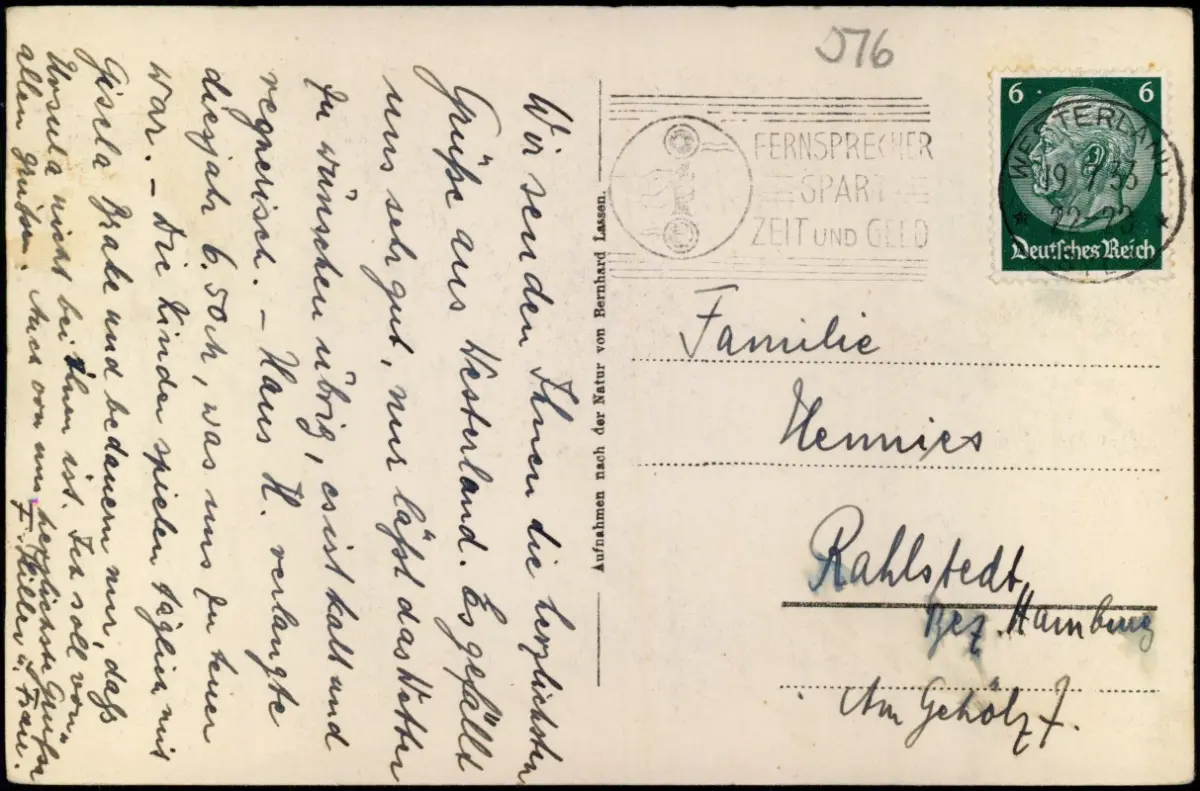 Wir senden Ihnen die herzlichsten
Grüße aus Westerland. Es gefällt
uns sehr gut, nur läßt das Wetter
zu wünschen übrig, es ist kalt und
regnerisch. – Haus H. verlangte
diesjahr 6.50 M, was uns zu teuer
war. – Die Kinder spielen täglich mit
Gisela Brake und bedauern nur, daß
Ursula nicht bei Ihnen ist. Ich soll von
allen grüßen. Auch von uns herzlichste Grüße
F. Hiller u. Frau.
Aufnahmen nach der Natur von Bernhard Lassen.
576
FERNSPRECHER
SPART
ZEIT UND GELD
6 6
Deutsches Reich
WESTERLAND
19 7 33
22-23
Familie
Hennies
Rahlstedt,
Bez. Hamburg
Am Gehölz 7.